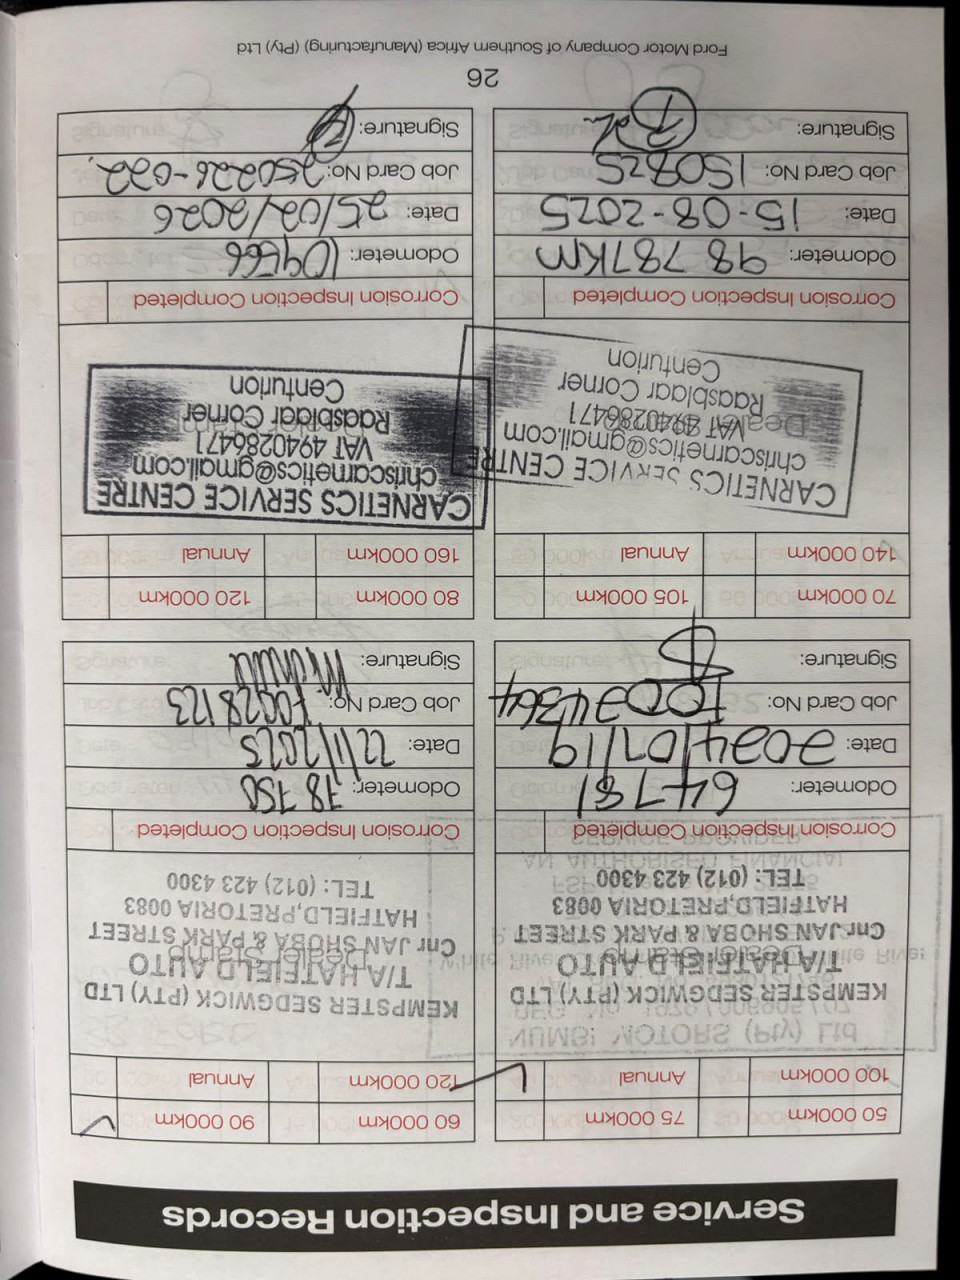 Service and Inspection Records
50 000km 75 000km
100 000km Annual
KEMPSTER SEDGWICK (PTY) LTD
T/A HATFIELD AUTO
Dealer Stamp
Cnr JAN SHOBA & PARK STREET
HATFIELD,PRETORIA 0083
TEL: (012) 423 4300
Corrosion Inspection Completed
Odometer: 64781
Date: 2024/07/19
Job Card No:
Signature:
60 000km 90 000km
120 000km Annual
KEMPSTER SEDGWICK (PTY) LTD
T/A HATFIELD AUTO
Dealer Stamp
Cnr JAN SHOBA & PARK STREET
HATFIELD,PRETORIA 0083
TEL: (012) 423 4300
Corrosion Inspection Completed
Odometer: 78 750
Date:
Job Card No:
Signature:
70 000km 105 000km
140 000km Annual
CARNETICS SERVICE CENTRE
chriscarnetics@gmail.com
VAT 4940286471
Raasblaar Corner
Centurion
Corrosion Inspection Completed
Odometer: 98 787KM
Date: 15-08-2025
Job Card No: 150825
Signature:
80 000km 120 000km
160 000km Annual
CARNETICS SERVICE CENTRE
chriscarnetics@gmail.com
VAT 4940286471
Raasblaar Corner
Centurion
Corrosion Inspection Completed
Odometer:
Date: 25/02/2026
Job Card No: 250226-022
Signature:
26
Ford Motor Company of Southern Africa (Manufacturing) (Pty) Ltd